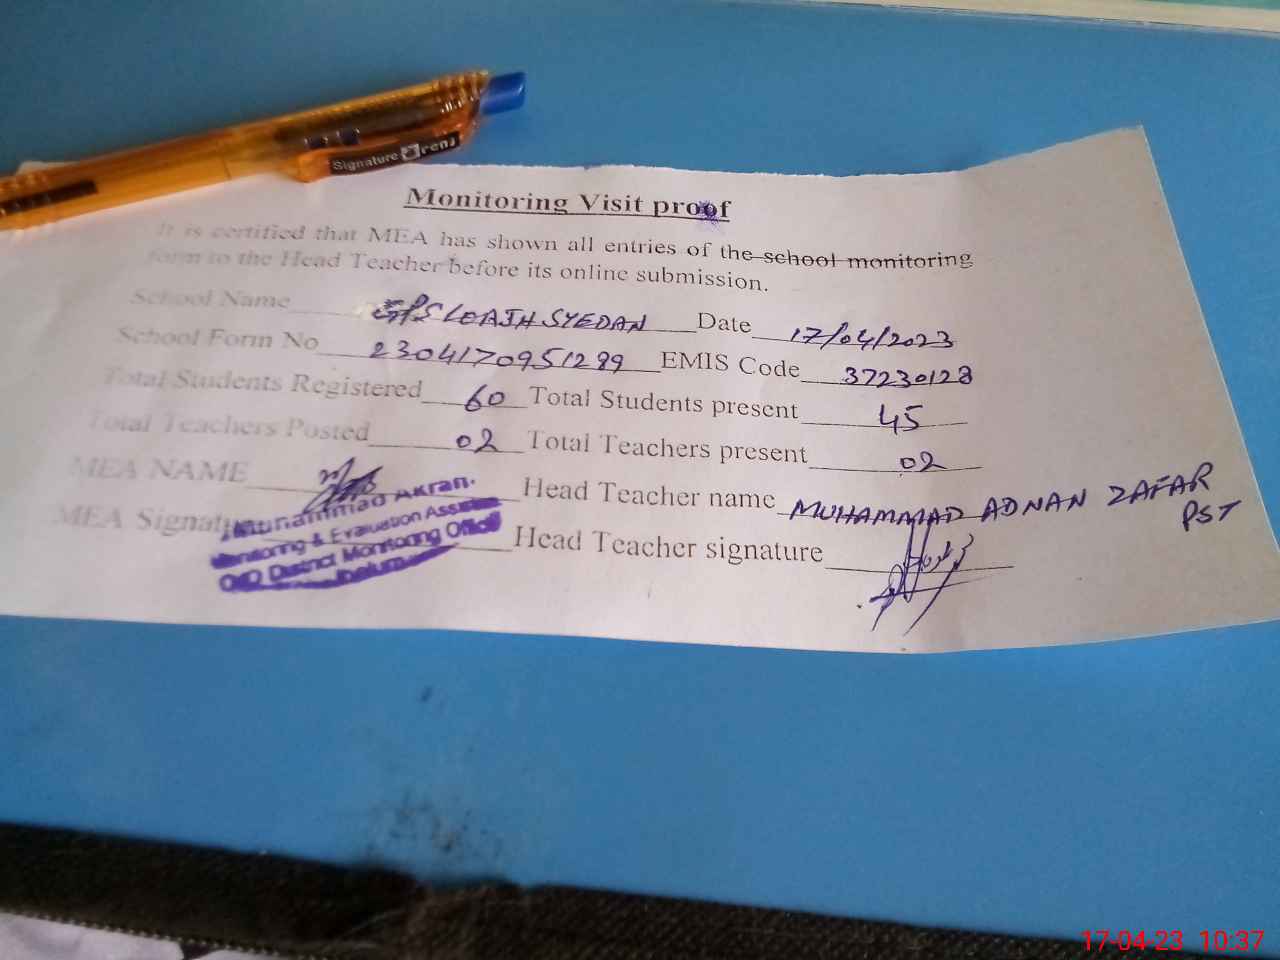 Signature
Monitoring Visit proof
It is certified that MEA has shown all entries of the school monitoring
form to the Head Teacher before its online submission.
School Name GPS LOAJH SYEDAN Date 17/04/2023
School Form No 2304170951299 EMIS Code 37230128
Total Students Registered 60 Total Students present 45
Total Teachers Posted 02 Total Teachers present 02
MEA NAME Head Teacher name MUHAMMAD ADNAN ZAFAR
PST
MEA Signature Head Teacher signature
Muhammad Akram
Monitoring & Evaluation Assistant
O/O District Monitoring Officer
Jhelum
17-04-23 10:37